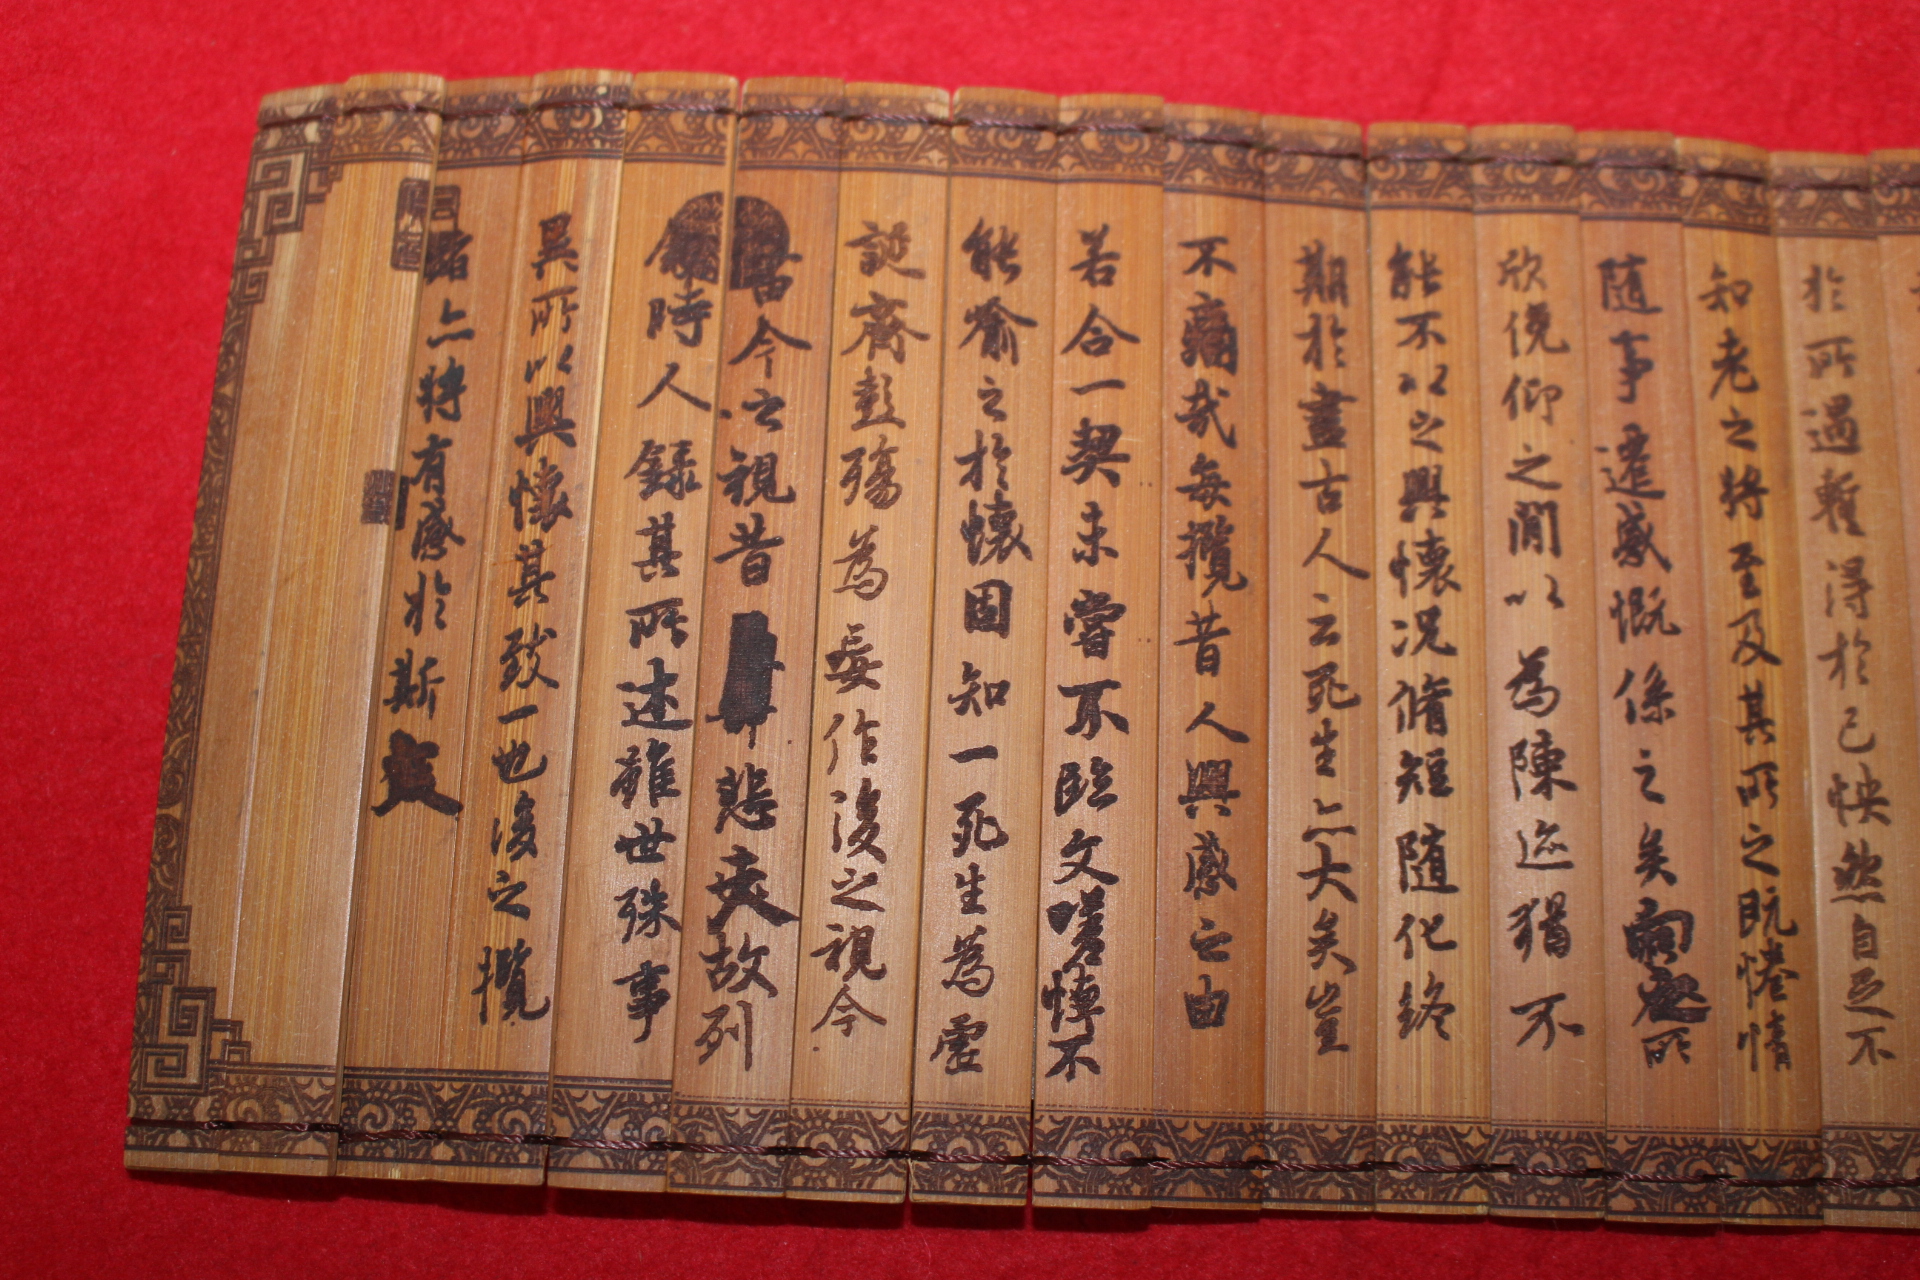 於所遇暫得於己怏然自足不
知老之將至及其所之既惓情
隨事遷感慨係之矣向之所
欣俛仰之閒以為陳迹猶不
能不以之興懷況脩短隨化終
期於盡古人云死生亦大矣豈
不痛哉每攬昔人興感之由
若合一契未嘗不臨文嗟悼不
能喻之於懷固知一死生為虛
誕齊彭殤為妄作後之視今
由今之視昔悲夫故列
敘時人錄其所述雖世殊事
異所以興懷其致一也後之攬
者亦將有感於斯文